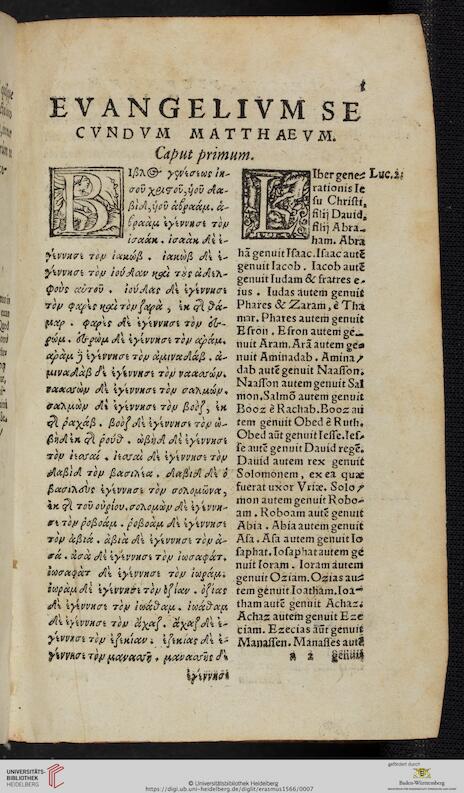 1
EVANGELIVM SE
CVNDVM MATTHAEVM.
Caput primum.
Βιβλος γενέσεως ἰη-
σοῦ χριστοῦ, ὑοῦ δα-
βὶδ, ὑοῦ ἀβραάμ. ἀ-
βραὰμ ἐγέννησε τὸν
ἰσαάκ. ἰσαὰκ δὲ ἐ-
γέννησε τὸν ἰακώβ. ἰακὼβ δὲ ἐ-
γέννησε τὸν ἰούδαν καὶ τοὺς ἀδελ-
φοὺς αὐτοῦ. ἰούδας δὲ ἐγέννησε
τὸν φαρὲς καὶ τὸν ζαρὰ, ἐκ τῆς θά-
μαρ. φαρὲς δὲ ἐγέννησε τὸν ἐσ-
ρώμ. ἐσρὼμ δὲ ἐγέννησε τὸν ἀράμ.
ἀρὰμ δὲ ἐγέννησε τὸν ἀμιναδάβ. ἀ-
μιναδὰβ δὲ ἐγέννησε τὸν ναασσών.
ναασσὼν δὲ ἐγέννησε τὸν σαλμών.
σαλμὼν δὲ ἐγέννησε τὸν βοὸζ, ἐκ
τῆς ραχάβ. βοὸζ δὲ ἐγέννησε τὸν ὠ-
βὴδ ἐκ τῆς ρούθ. ὠβὴδ δὲ ἐγέννησε
τὸν ἰεσσαί. ἰεσσαὶ δὲ ἐγέννησε τὸν
δαβὶδ τὸν βασιλέα. δαβὶδ δὲ ὁ
βασιλεὺς ἐγέννησε τὸν σολομῶνα,
ἐκ τῆς τοῦ οὐρίου. σολομὼν δὲ ἐγέννη-
σε τὸν ροβοάμ. ροβοὰμ δὲ ἐγέννησε
τὸν ἀβιά. ἀβιὰ δὲ ἐγέννησε τὸν ἀ-
σά. ἀσὰ δὲ ἐγέννησε τὸν ἰωσαφάτ.
ἰωσαφὰτ δὲ ἐγέννησε τὸν ἰωράμ.
ἰωρὰμ δὲ ἐγέννησε τὸν ὀζίαν. ὀζίας
δὲ ἐγέννησε τὸν ἰωάθαμ. ἰωάθαμ
δὲ ἐγέννησε τὸν ἄχαζ. ἄχαζ δὲ ἐ-
γέννησε τὸν ἐζεκίαν. ἐζεκίας δὲ ἐ-
γέννησε τὸν μανασσῆ. μανασσῆς δὲ
ἐγέννησε
Liber gene- Luc. 2.
rationis Ie
su Christi,
filij Dauid,
filij Abra-
ham. Abra
hā genuit Isaac. Isaac autē
genuit Iacob. Iacob autē
genuit Iudam & fratres e-
ius. Iudas autem genuit
Phares & Zaram, è Tha
mar. Phares autem genuit
Esron. Esron autem ge-
nuit Aram. Arā autem ge-
nuit Aminadab. Amina-
dab autē genuit Naasson.
Naasson autem genuit Sal
mon. Salmō autem genuit
Booz è Rachab. Booz au
tem genuit Obed è Ruth.
Obed aūt genuit Iesse. Ies-
se autē genuit Dauid regē.
Dauid autem rex genuit
Solomonem, ex ea quæ
fuerat vxor Vriæ. Solo-
mon autem genuit Robo-
am. Roboam autē genuit
Abia. Abia autem genuit
Asa. Asa autem genuit Io
saphat. Iosaphat autem ge
nuit Ioram. Ioram autem
genuit Oziam. Ozias au-
tem genuit Ioatham. Ioa-
tham autē genuit Achaz.
Achaz autem genuit Eze
ciam. Ezecias aūt genuit
Manassen. Manasses autē
a 2 genuit
UNIVERSITÄTS-
BIBLIOTHEK
HEIDELBERG
© Universitätsbibliothek Heidelberg
https://digi.ub.uni-heidelberg.de/diglit/erasmus1566/0007
gefördert durch
Baden-Württemberg